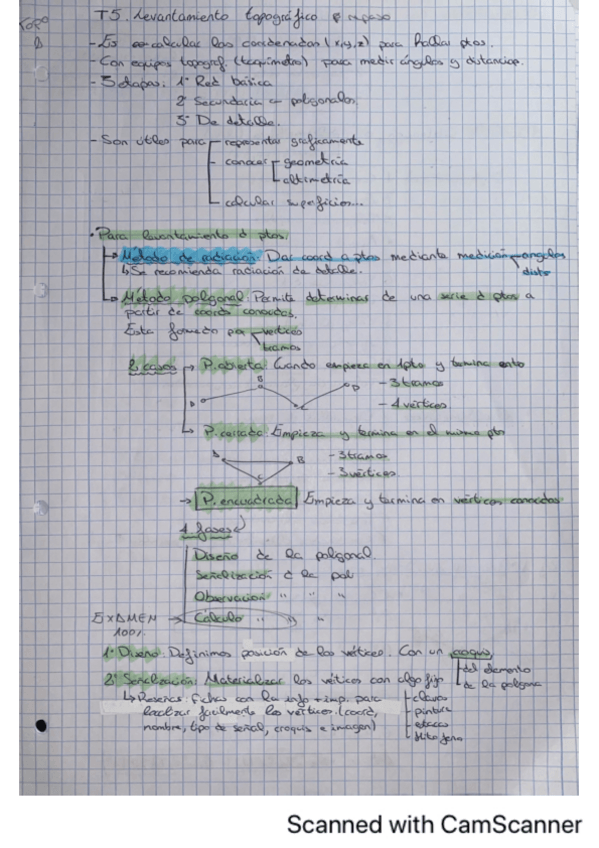 T5. Levantamiento topográfico repaso
TOPO
- Es calcular las coordenadas (x,y,z) para hallar ptos.
- Con equipos topograf. (taquímetro) para medir ángulos y distancias.
- 3 etapas: 1º Red básica
2º Secundaria o poligonales.
3º De detalle.
- Son útiles para representar gráficamente
conocer geometría
altimetría
calcular superficies...
• Para levantamiento d ptos.
Método de radiación: Dar coord a ptos mediante medición angulos
dists
↳ Se recomienda radiación de detalle.
Método poligonal: Permite determinar de una serie d ptos a
partir de coords conocidas.
Esta formado por vertices
tramos
2 casos P. abierta: Cuando empieza en 1pto y termina en otro
B D - 3 tramos
A C - 4 vértices.
P. cerrada: Empieza y termina en el mismo pto
A B - 3 tramos
C - 3 vértices.
→ P. encuadrada: Empieza y termina en vértices conocidos
4 fases
Diseño de la poligonal.
Señalización d la pol
Observación " " "
EXAMEN → Cálculo " " "
100%
1º Diseño: Definimos posición de los vértices. Con un croquis
del elemento
2º Señalización: Materializar los véticos con algo fijo
de la poligona
↳ Reseñas: fichas con la info + imp. para clavos
localizar facilmente los vértices (coord, pintura
nombre, tipo de señal, croquis e imagen) estacas
hito feno
Scanned with CamScanner